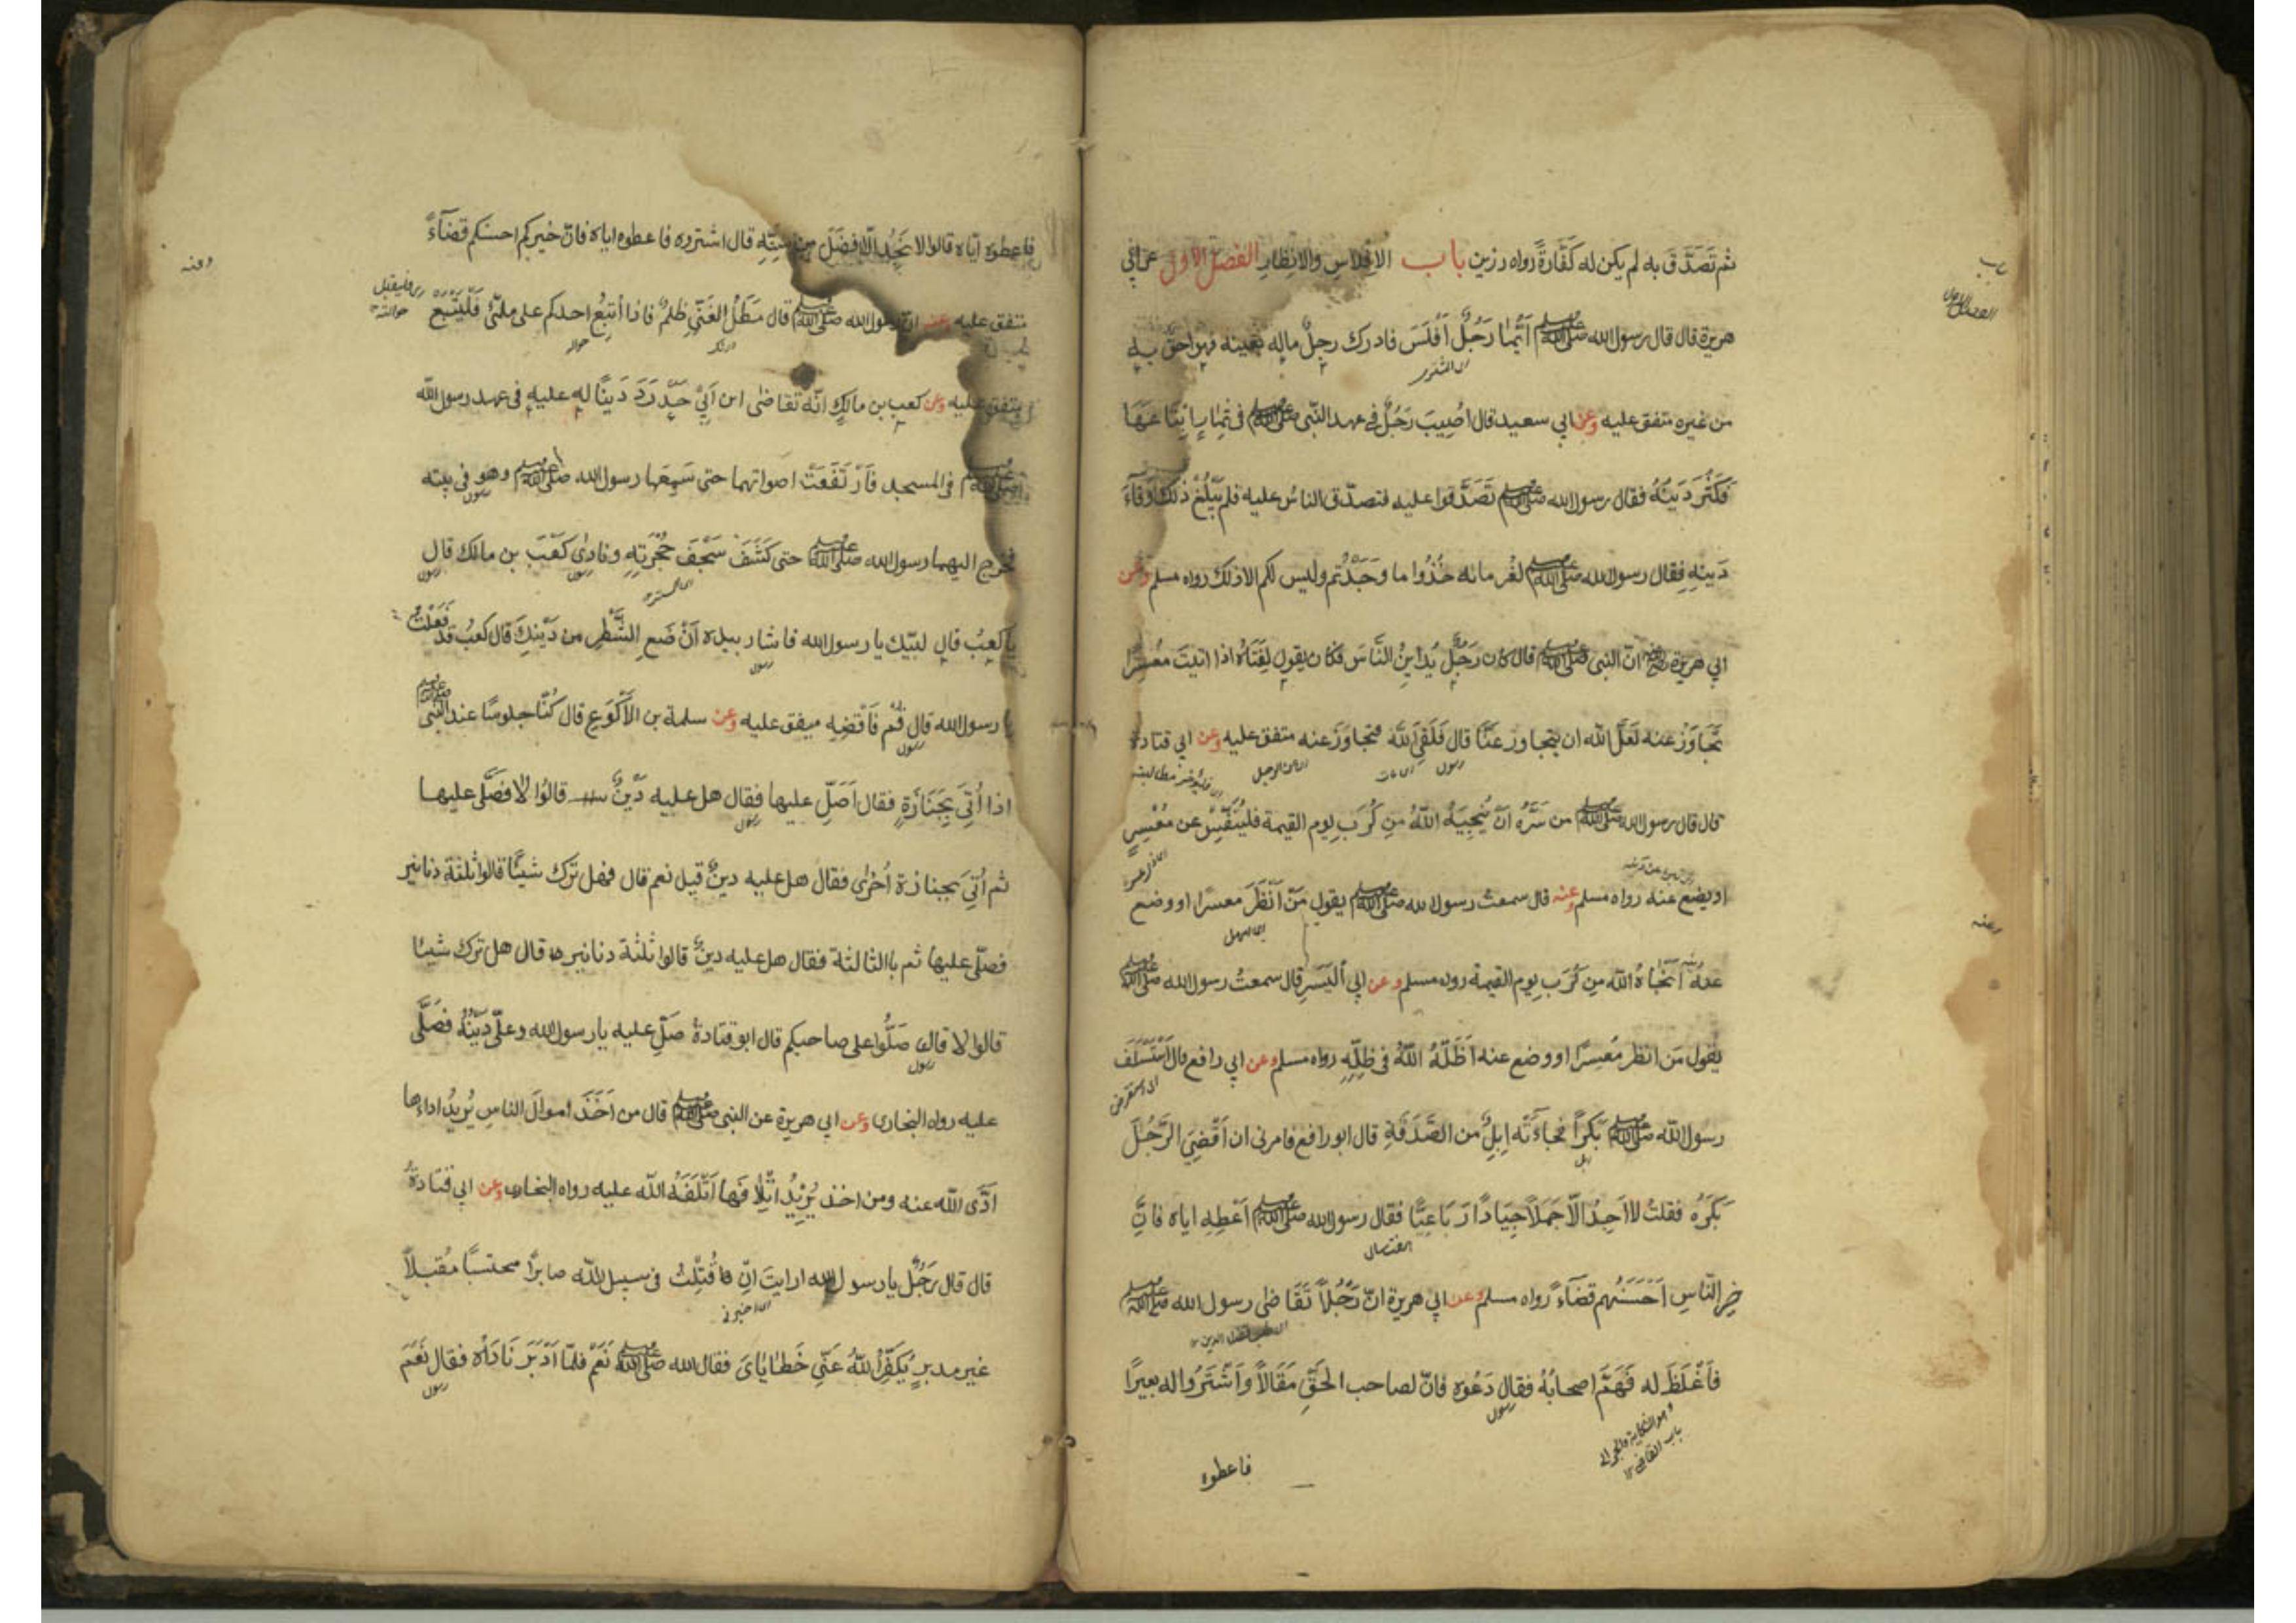 ثم تَصَدَّقَ به لم يكن له كَفَّارةً رواه رزين باب الافلاسِ والانظارِ الفصل الاول عن ابي
هريرة قال قال رسول الله صلى الله عليه وسلم أَيُّمَا رَجُلٌ أَفْلَسَ فادرك رجلٌ ماله بعينه فهو احقُّ به
من غيره متفق عليه وعن ابي سعيد قال اُصِيبَ رَجُلٌ في عهد النَّبي صلى الله عليه وسلم في ثِمَارٍ اِبْتَاعَهَا
فَكَثُرَ دَيْنُهُ فقال رسول الله صلى الله عليه وسلم تَصَدَّقوا عليه فتصدّق الناسُ عليه فلم يَبْلُغْ ذٰلك وَفَاءَ
دَينِهِ فقال رسول الله صلى الله عليه وسلم لغُرمائه خُذُوا ما وَجَدْتُم وليس لكم الا ذلك رواه مسلم وعن
ابي هريرة انّ النبى صلى الله عليه وسلم قال كان رَجُلٌ يُدَايِنُ النَّاسَ فكان يقول لِفَتَاهُ اذا اتيتَ مُعْسِرًا
تَجَاوَزْ عنه لَعَلَّ الله ان يتجاوز عَنَّا قال فَلَقِيَ اللّٰهَ فتجاوَزَ عنه متفق عليه وعن ابي قتادة
قال قال رسول الله صلى الله عليه وسلم من سَرَّهُ اَنْ يُنْجِيَهُ اللّٰهُ مِن كُرَبِ يوم القيمة فليُنَفِّسْ عن مُعْسِرٍ
او يضع عنه رواه مسلم وعنه قال سمعت رسول الله صلى الله عليه وسلم يقول مَنْ اَنْظَرَ معسرًا او وضع
عنهُ اَنْجَاهُ الله مِن كُرَبِ يوم القيمة رواه مسلم وعن ابي اَليَسَرِ قال سمعتُ رسول الله صلى الله عليه وسلم
يقول مَن انظر مُعسِرًا او وضع عنه اَظَلَّهُ اللّٰهُ فى ظِلِّهِ رواه مسلم وعن ابي رافع قال اَسْتَسْلَفَ
رسول الله صلى الله عليه وسلم بَكرًا فجاءَتْه اِبِلٌ من الصَّدَقَةِ قال ابو رافع فامرنى ان اَقْضِيَ الرَّجُلَ
بَكرَهُ فقلتُ لا اَجِدُ الاّ جَمَلاً خِيَارًا رَبَاعِيًّا فقال رسول الله صلى الله عليه وسلم اَعْطِهِ اياه فانّ
خيرَ النّاسِ اَحْسَنُهم قضاءً رواه مسلم وعن ابي هريرة انّ رَجُلاً تَقَاضى رسول الله صلى الله عليه وسلم
فَاَغْلَظَ له فَهَمَّ اصحابُهُ فقال دَعُوه فانّ لصاحب الحَقِّ مَقَالاً وَاَشْتَرُوا له بعيرًا
فاعطوه
فاعطوه ايّاه قالوا لا نَجِدُ الاّ افضَلَ من سِنِّهِ قال اشتروه فاعطوه اياه فانّ خيركم احسنكم قضآءً
متفق عليه وعنه انّ رسول الله صلى الله عليه وسلم قال مَطْلُ الغَنِيِّ ظلمٌ فاذا أُتبِعَ احدكم على ملئٍ فَلْيَتْبَعْ
متفق عليه وعن كعب بن مالكٍ انّه تقاضى ابن اَبي حَدْرَدَ دَينًا له عليه فى عهد رسول الله
صلى الله عليه وسلم فى المسجد فَارْتَفَعَتْ اصواتهما حتى سَمِعَها رسول الله صلى الله عليه وسلم وهو فى بيته
فخرج اليهما رسول الله صلى الله عليه وسلم حتى كَشَفَ سَجْفَ حُجْرَتِهِ ونادٰى كَعْبَ بن مالك قال
يا كعبُ قال لبّيك يا رسول الله فاشار بيده اَنْ ضَعِ الشَّطْرِ من دَيْنِكَ قال كعبُ قد فَعَلْتُ
يا رسول الله قال قُمْ فَاَقْضِهِ متفق عليه وعن سلمة بن الاَكْوَعِ قال كُنّا جلوسًا عند النبى صلى الله عليه وسلم
اذا اُتِيَ بِجَنَازَةٍ فقال اَصَلِّ عليها فقال هل عليه دَيْنٌ قالوُا لا فَصَلَّى عليها
ثم اُتِيَ بجنازة اُخرٰى فقال هل عليه دينٌ قيل نعم قال فهل ترك شيئًا قالوا ثلثة دنانير
فصلّى عليها ثم بالثالثة فقال هل عليه دينٌ قالوا ثلثة دنانير قال هل ترك شيئا
قالوا لا قال صَلُّوا على صاحبكم قال ابو قتادة صَلِّ عليه يا رسول الله وعلَيّ دَيْنُهُ فصَلَّى
عليه رواه البخارى وعن ابي هريرة عن النبى صلى الله عليه وسلم قال من اَخَذَ اموالَ الناسِ يُريدُ اداءها
اَدَّى الله عنه ومن اخذ يُرِيْدُ اتْلَافَها اَتْلَفَهُ الله عليه رواه البخارى وعن ابي قتادة
قال قال رَجُلٌ يا رسول الله ارايتَ اِنْ قُتِلْتُ فى سبيل الله صابرًا محتسبًا مُقبلاً
غير مدبرٍ يُكَفِّرُ اللّٰهُ عَنِّي خَطَايَاىَ فقال الله صلى الله عليه وسلم نَعَمْ فلمّا اَدْبَرَ نَادَاه فقال نَعَمَ